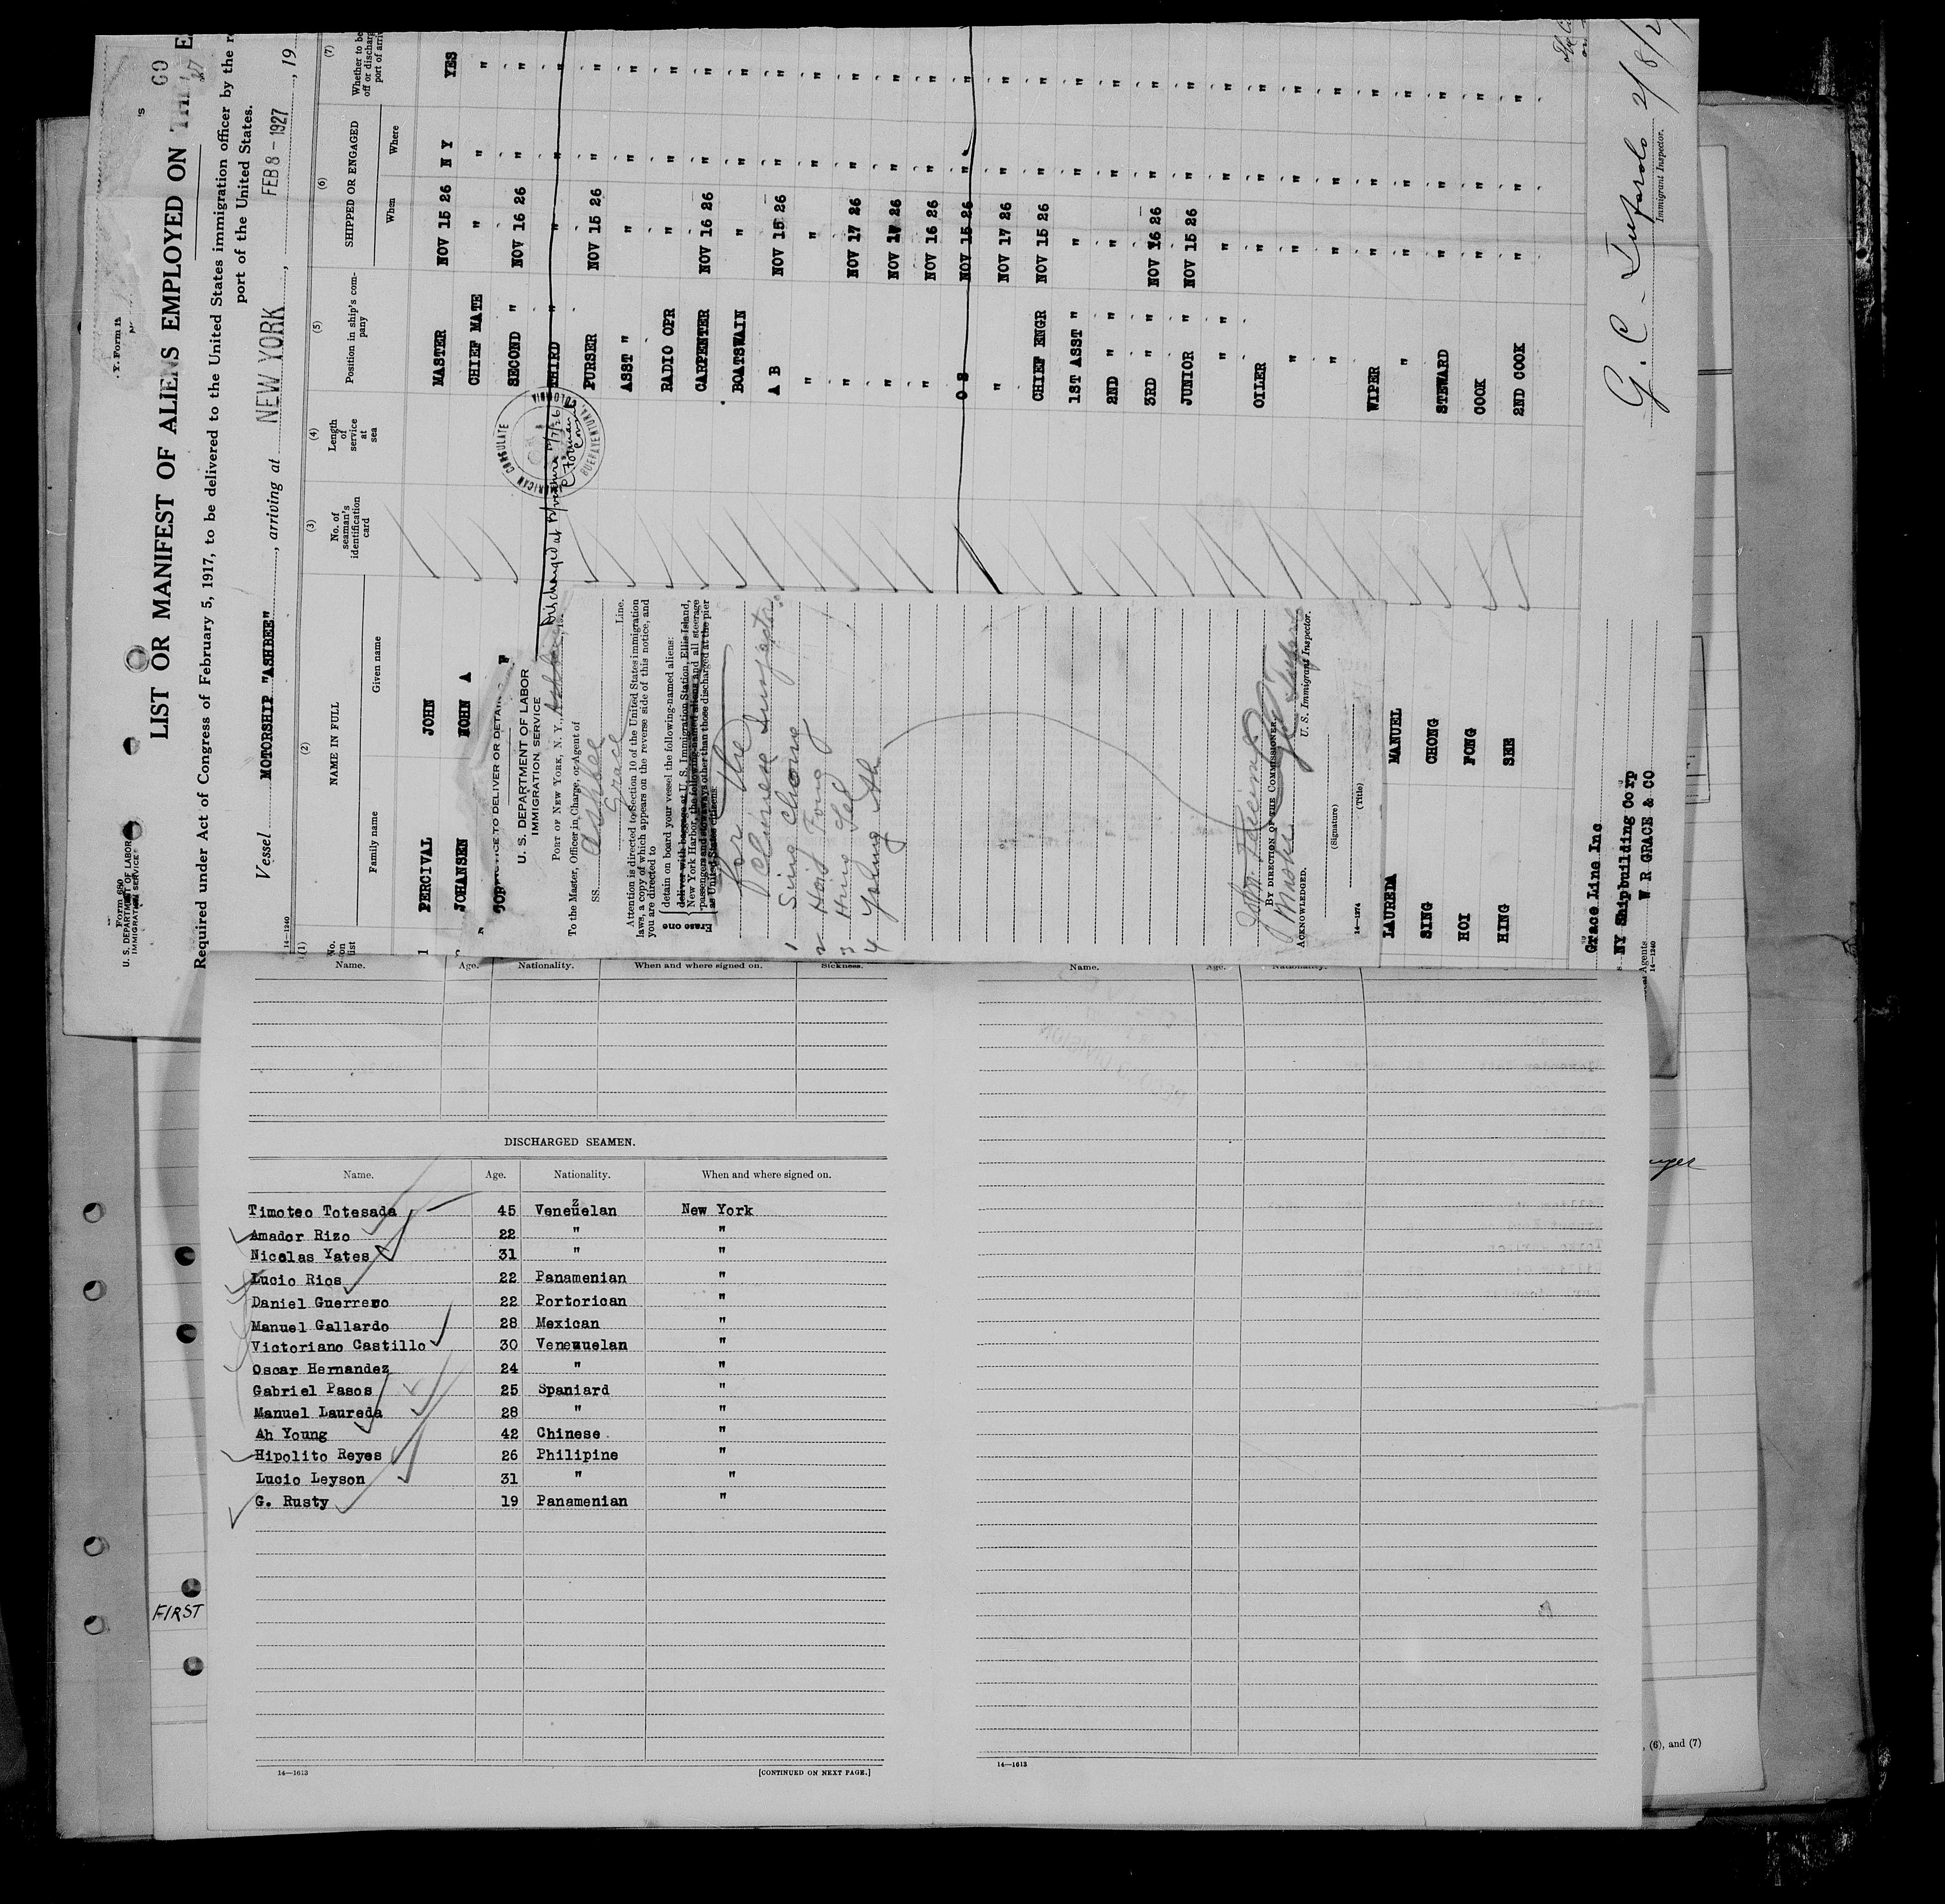 Form 680
U. S. DEPARTMENT OF LABOR
IMMIGRATION SERVICE
LIST OR MANIFEST OF ALIENS EMPLOYED ON
Required under Act of Congress of February 5, 1917, to be delivered to the United States immigration officer by the
port of the United States.
Vessel MOMORSHIP "ASHBEE", arriving at NEW YORK, FEB 8 - 1927, 19
14—1240
(1) (2) (3) (4) (5) (6) (7)
No. on list
NAME IN FULL
Family name
Given name
No. of seaman's identification card
Length of service at sea
Position in ship's company
SHIPPED OR ENGAGED
When
Where
Whether to be
off or discharg
port of arri
1 PERCIVAL JOHN MASTER NOV 15 26 N Y YES
JOHANSEN JOHN A CHIEF MATE " " "
SECOND " NOV 16 26 " "
THIRD " " " "
PURSER NOV 15 26 " "
ASST " " " "
RADIO OPR " " "
CARPENTER NOV 16 26 " "
BOATSWAIN " " "
A B NOV 15 26 " "
" " " "
" NOV 17 26 " "
" NOV 17 26 " "
" NOV 16 26 " "
O S NOV 15 26 " "
" NOV 17 26 " "
CHIEF ENGR NOV 15 26 " "
1ST ASST " " " "
2ND " " " " "
3RD " " NOV 16 26 " "
JUNIOR " NOV 15 26 " "
" " " " "
OILER " " "
" " " "
" " " "
WIPER " " "
LAUREDA MANUEL " " " "
SING CHONG STEWARD " " "
HOI FONG COOK " " "
HING SEE 2ND COOK " " "
AMERICAN CONSULATE
BUENAVENTURA, COLOMBIA
Discharged at
Grace Line Inc
NY Shipbuilding Corp
W R GRACE & CO
Agents
14—1240
Immigrant Inspector.
NOTICE TO DELIVER OR DETAIN
U. S. DEPARTMENT OF LABOR
IMMIGRATION SERVICE
PORT OF NEW YORK, N. Y.,
To the Master, Officer in Charge, or Agent of
SS. Ashbee
Grace Line.
Attention is directed to Section 10 of the United States immigration
laws, a copy of which appears on the reverse side of this notice, and
you are directed to
Erase one
detain on board your vessel the following-named aliens:
deliver with baggage at U. S. Immigration Station, Ellis Island,
New York Harbor, the following-named aliens and all steerage
passengers and stowaways other than those discharged at the pier
as United States citizens:
For the
Chinese Inspector
1 Sing Chong
2 Hoi Fong
3 Hing
4 Young Ah
BY DIRECTION OF THE COMMISSIONER.
U. S. Immigrant Inspector.
ACKNOWLEDGED.
(Signature)
(Title)
14—1274
Name. Age. Nationality. When and where signed on. Sickness.
Name. Age. Nationality.
DISCHARGED SEAMEN.
Name. Age. Nationality. When and where signed on.
Timoteo Totesada 45 Veneuelan New York
z
Amador Rizo 22 " "
Nicolas Yates 31 " "
Lucio Rios 22 Panamenian "
Daniel Guerrero 22 Portorican "
Manuel Gallardo 28 Mexican "
Victoriano Castillo 30 Veneuuelan "
Oscar Hernandez 24 " "
Gabriel Pasos 25 Spaniard "
Manuel Laureda 28 " "
Ah Young 42 Chinese "
Hipolito Reyes 26 Philipine "
Lucio Leyson 31 " "
G. Rusty 19 Panamenian "
FIRST
14—1613 [CONTINUED ON NEXT PAGE.]
14—1613
, (6), and (7)